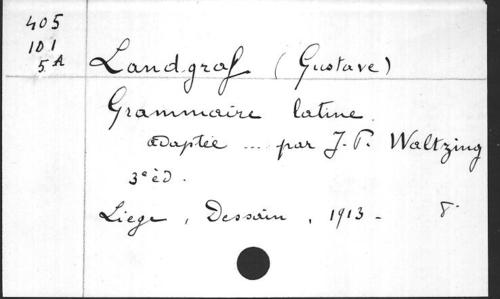 405
101
5A
Landgraf (Gustave)
Grammaire latine.
adaptée ... par J.P. Waltzing
3e éd.
Liege, Dessain, 1913 - 8°